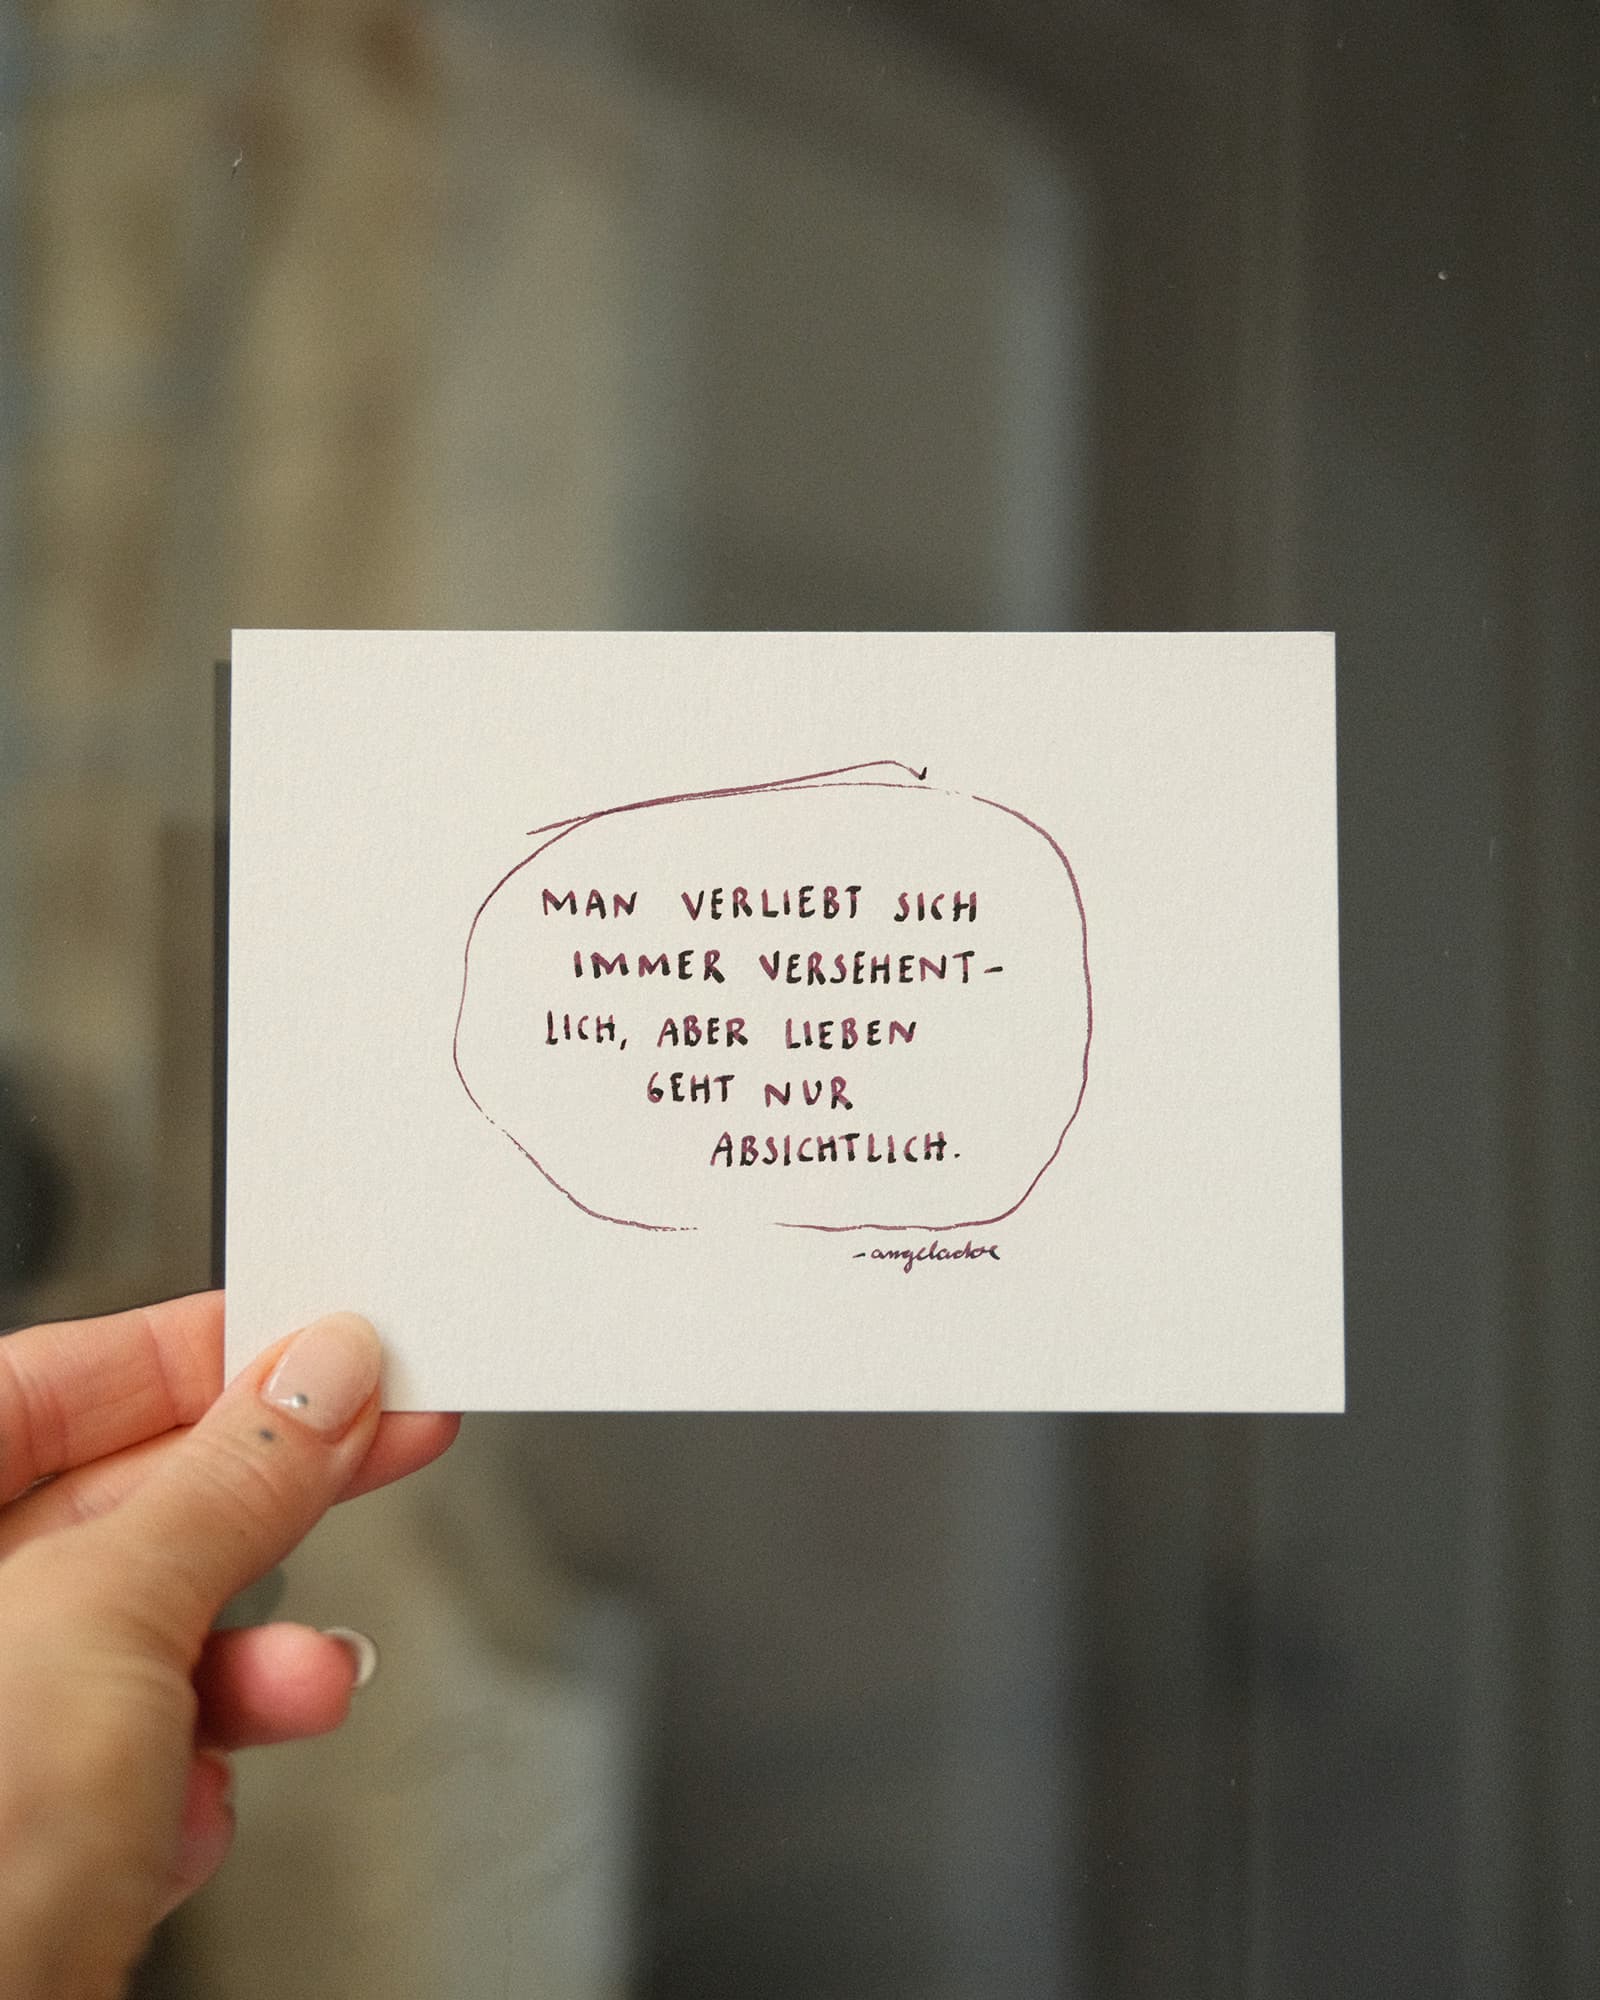 MAN VERLIEBT SICH
IMMER VERSEHENT-
LICH, ABER LIEBEN
GEHT NUR
ABSICHTLICH.
-angeladoe